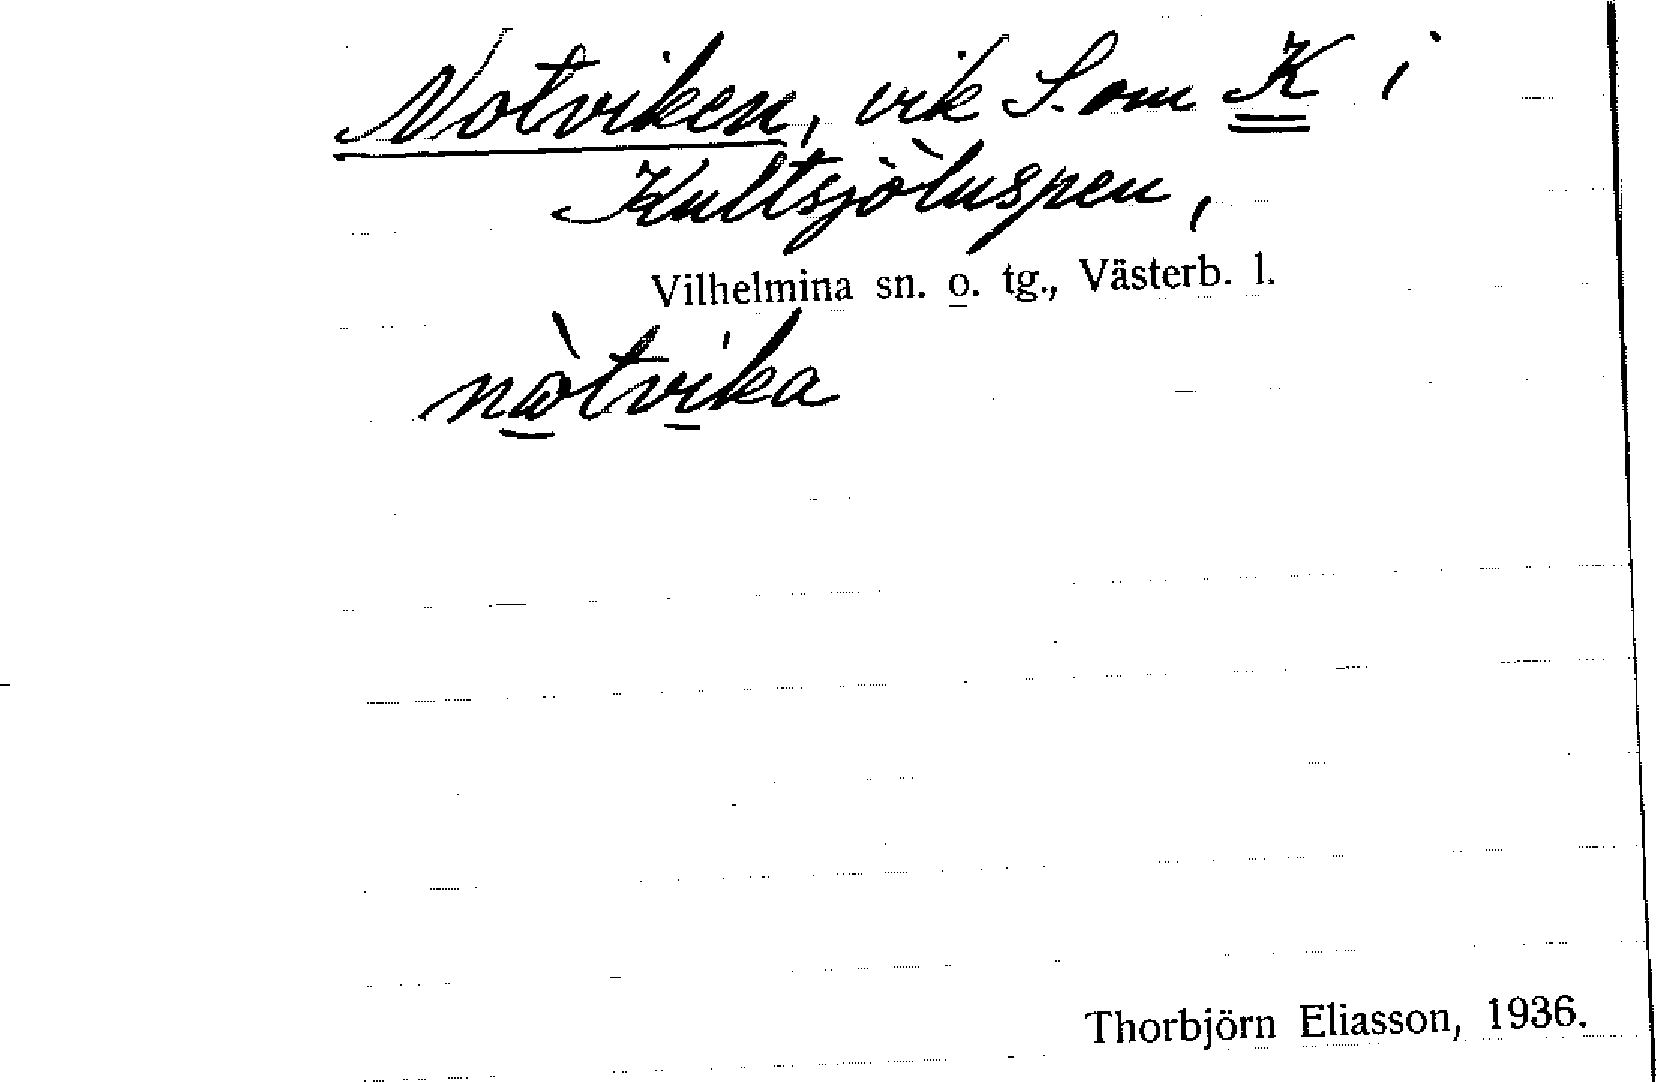 Notviken, vik S. om K i
Kultsjöluspen,
Vilhelmina sn. o. tg., Västerb. l.
nòtvika
Thorbjörn Eliasson, 1936.